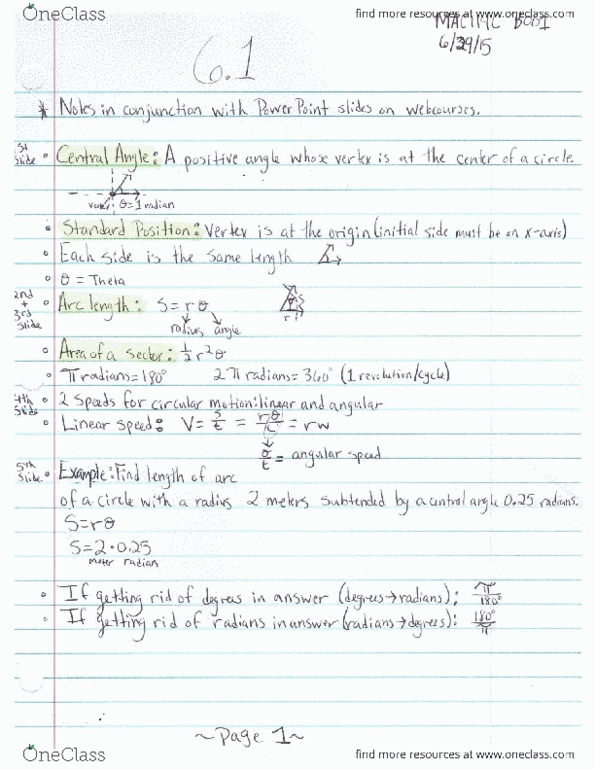 OneClass
find more resources at www.oneclass.com
6/29/15
6.1
* Notes in conjunction with PowerPoint slides on webcourses.
1st slide • Central Angle: A positive angle whose vertex is at the center of a circle
vertex θ=1 radian
• Standard Position: Vertex is at the origin (initial side must be on x-axis)
• Each side is the same length
• θ = Theta
2nd + 3rd slide • Arc length: S=rθ
radius angle
• Area of a sector: 1/2 r²θ
• π radians=180° 2π radians=360° (1 revolution/cycle)
4th slide • 2 Speeds for circular motion: linear and angular
• Linear speed: V= s/t = rθ/t = rw
θ/t = angular speed
5th slide • Example: Find length of arc
of a circle with a radius 2 meters subtended by a central angle 0.25 radians.
S=rθ
S=2•0.25
meter radian
• If getting rid of degrees in answer (degrees→radians): π/180°
• If getting rid of radians in answer (radians→degrees): 180°/π
~Page 1~
OneClass
find more resources at www.oneclass.com